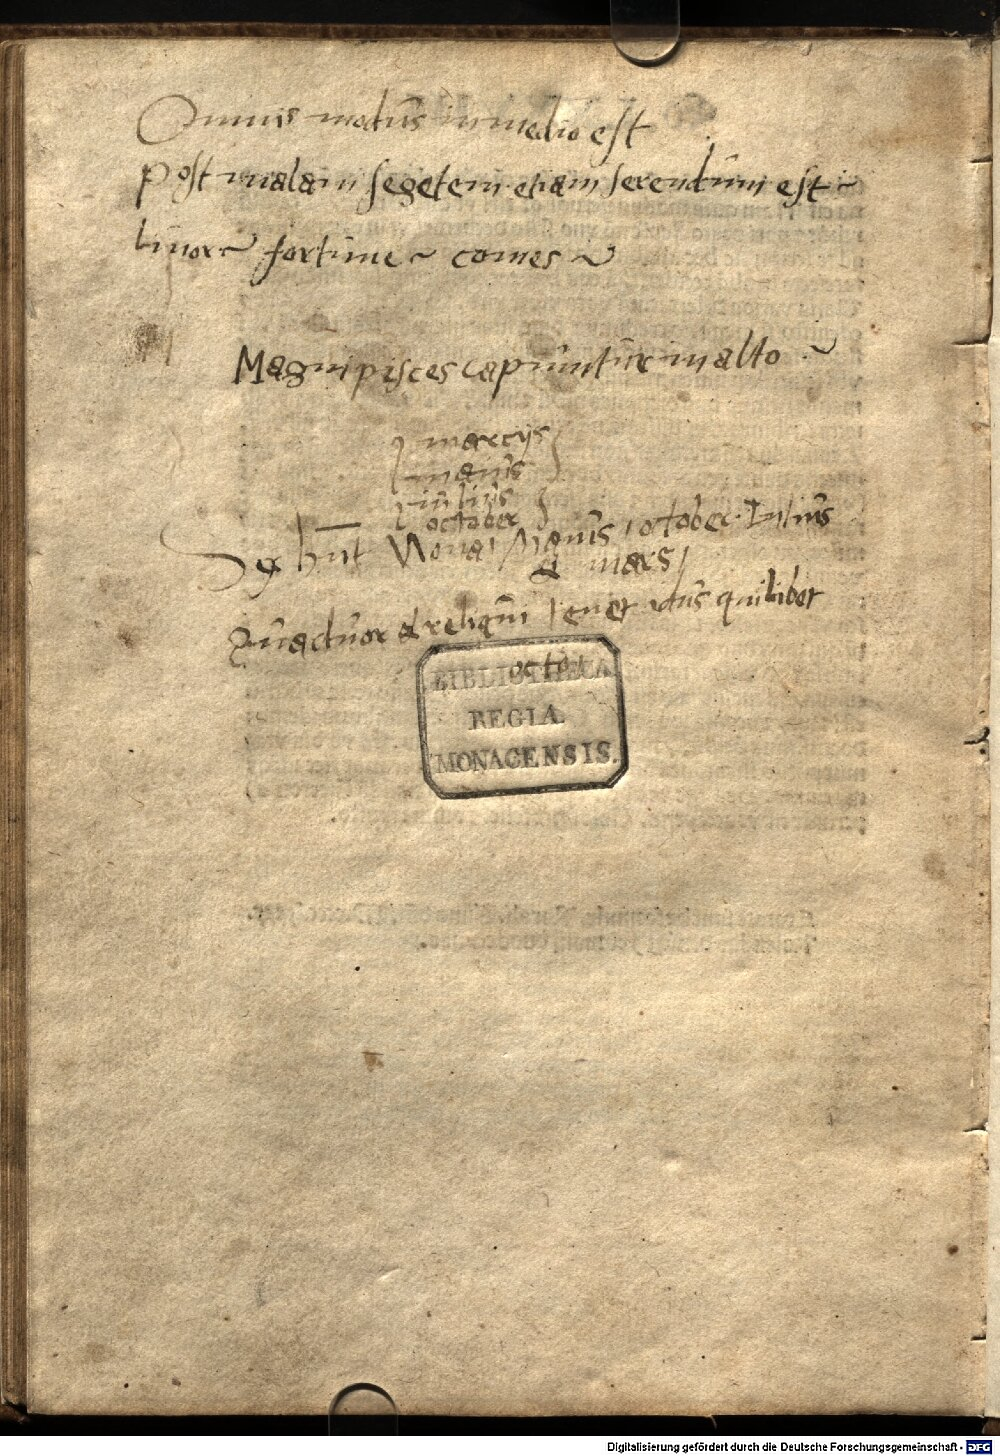 Omnis modus in medio est
post malam segetem etiam serendum est
livor fortune comes
Magni pisces capiuntur in alto
marcijs
maius
iulius
october
Sex hnt Nonas Maius october Iulius
& mars
Quactuor & reliqui tenet idus quilibet
octo
BIBLIOTHECA
REGIA
MONACENSIS.
Digitalisierung gefördert durch die Deutsche Forschungsgemeinschaft - DFG